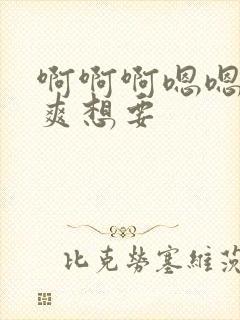 啊啊啊嗯嗯
爽想要
比克势塞维茨